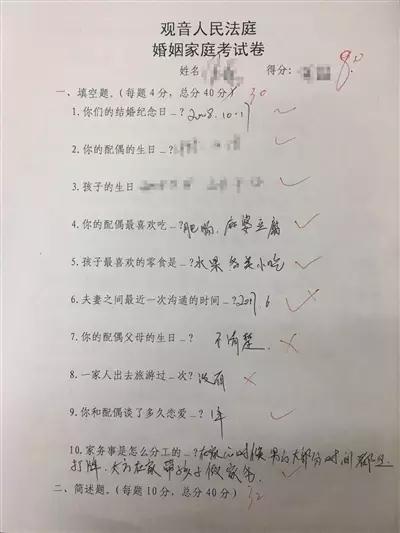 观音人民法庭
婚姻家庭考试卷
姓名 得分: 80
一、填空题。(每题4分,总分40分) 30
1. 你们的结婚纪念日_? 2008.10.17
2. 你的配偶的生日_?
3. 孩子的生日
4. 你的配偶最喜欢吃_? 肥肠、麻婆豆腐
5. 孩子最喜欢的零食是_? 水果 各类小吃
6. 夫妻之间最近一次沟通的时间_? 2017.6
7. 你的配偶父母的生日_? 不清楚.
8. 一家人出去旅游过_次? 没有
9. 你和配偶谈了多久恋爱_? 1年
10. 家务事是怎么分工的_? 在家的时候 男的大部分时间都在
打牌、女的在家带孩子做家务
二、简述题。(每题10分,总分40分) 32